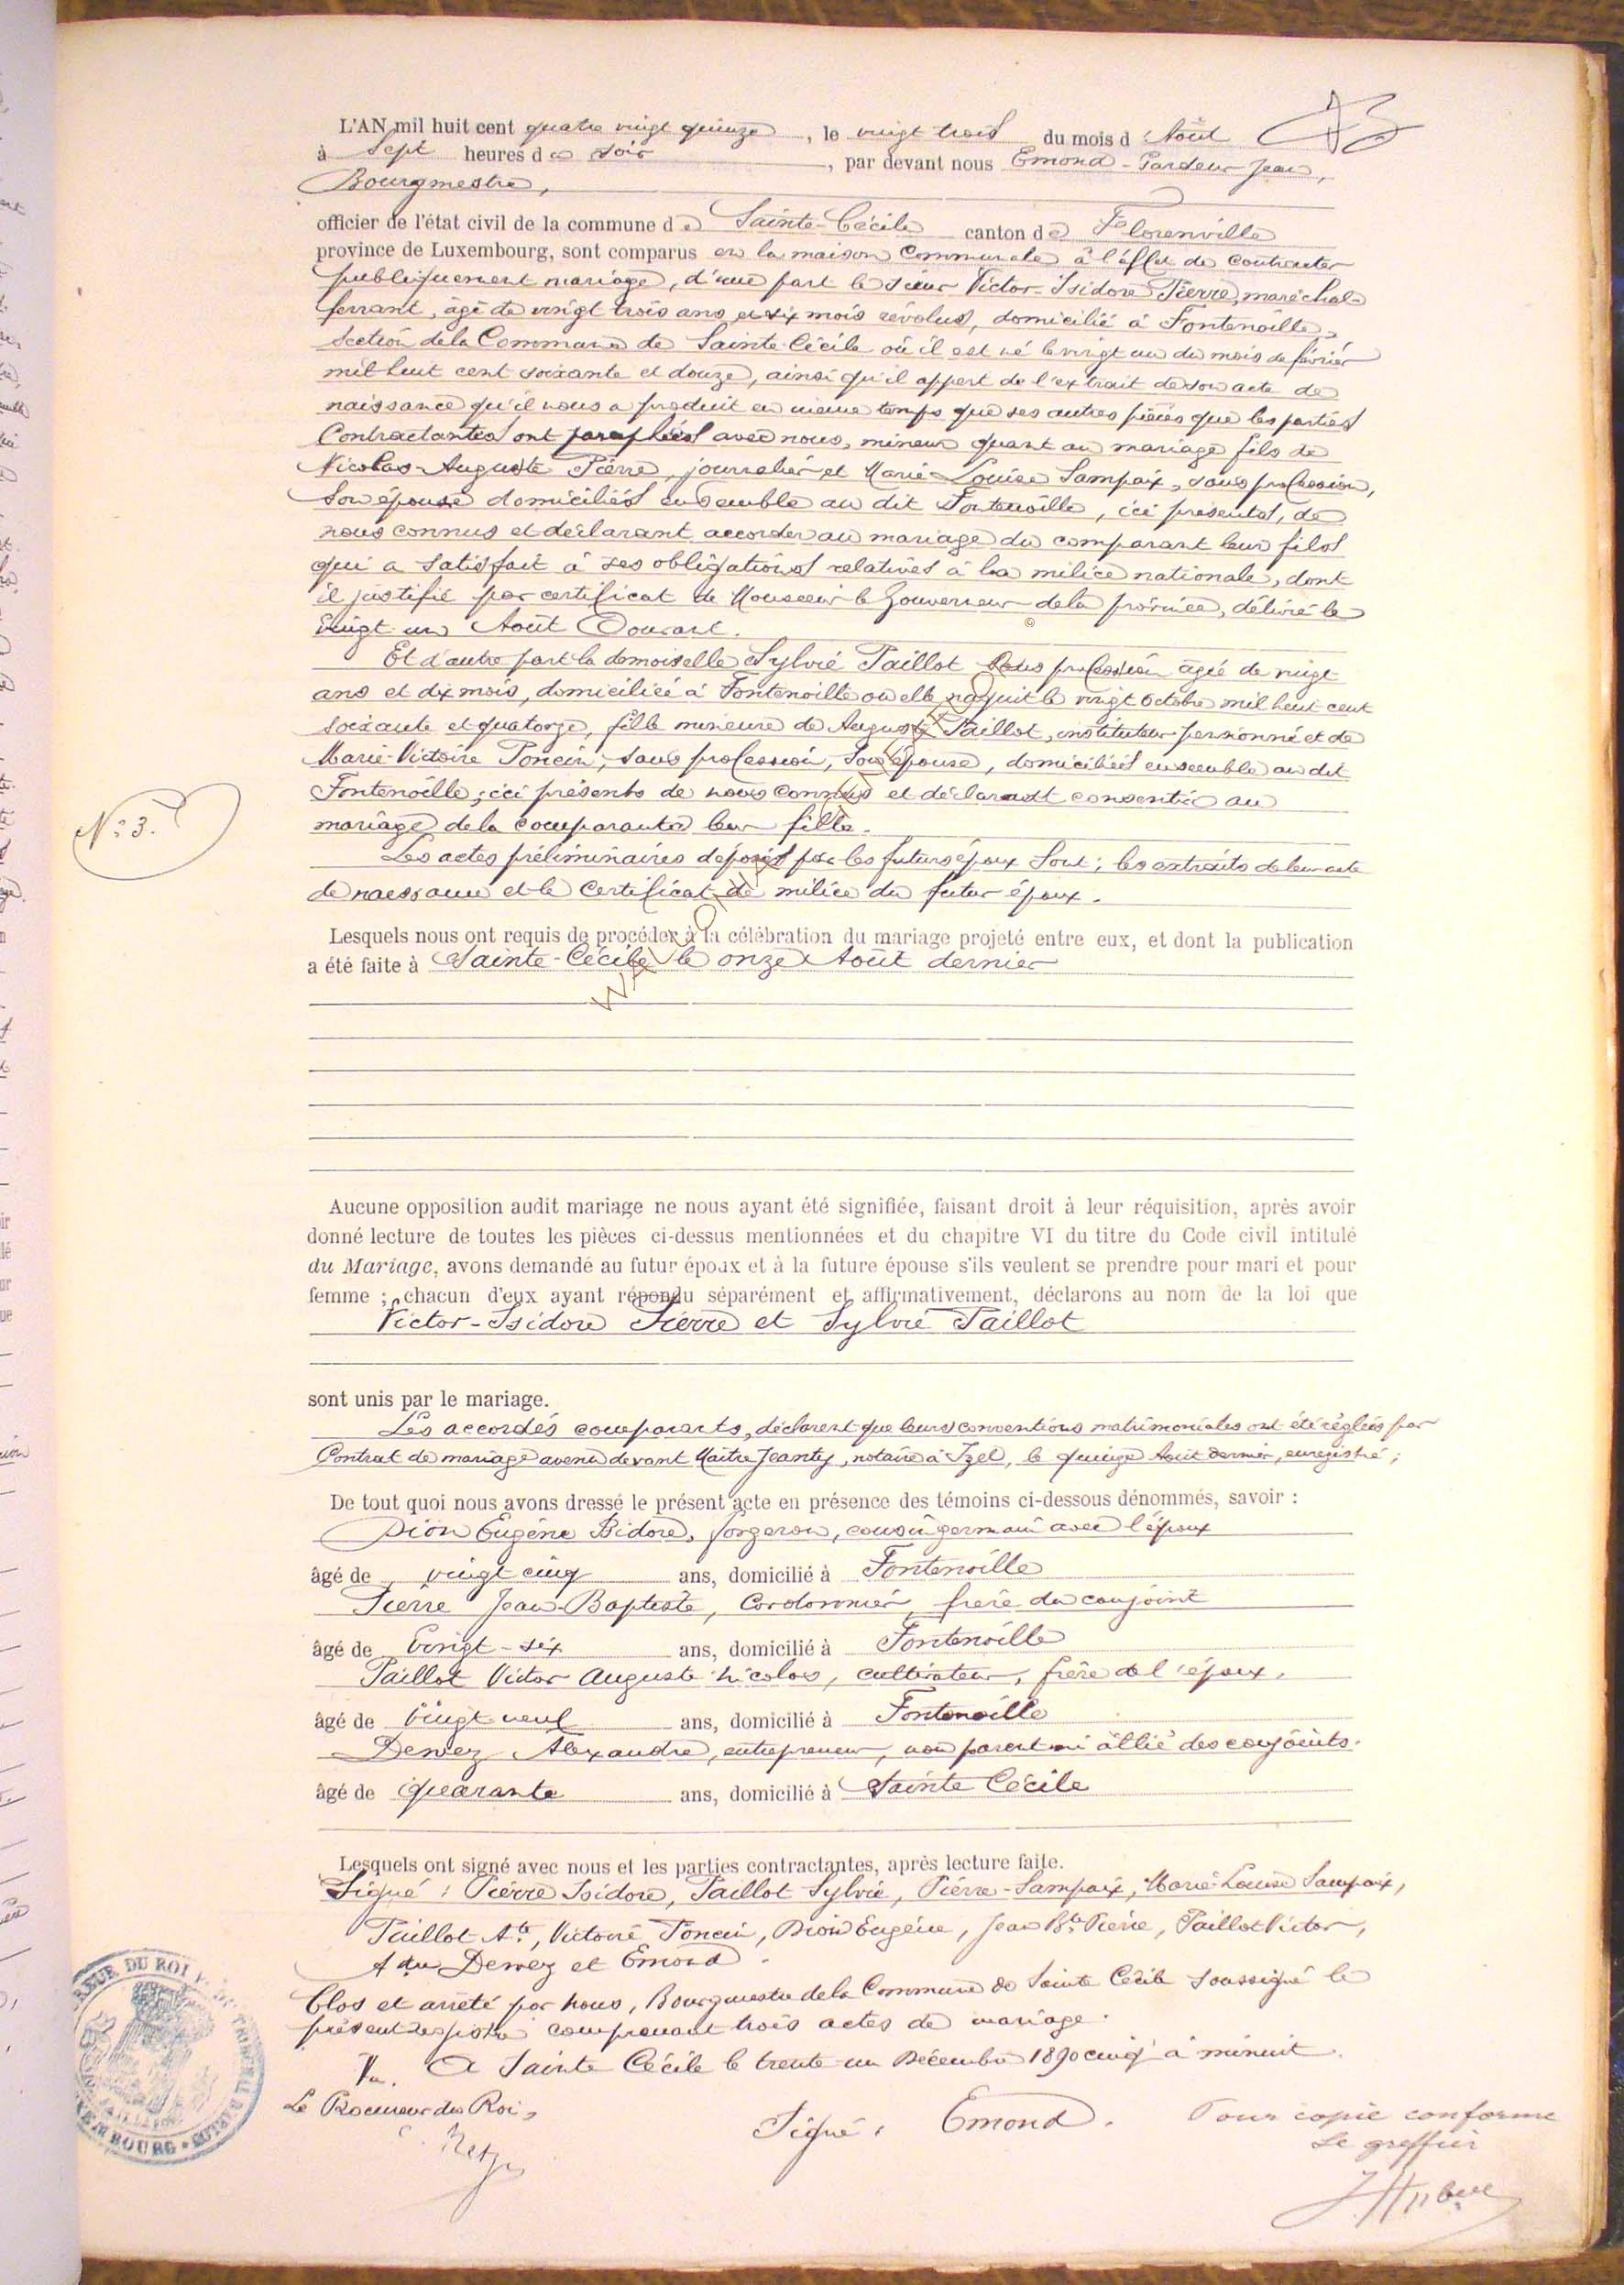 L'AN mil huit cent quatre vingt quinze, le vingt trois du mois d'Août
à Sept heures du soir, par devant nous Emond-Pardeur Jean,
Bourgmestre,
officier de l'état civil de la commune de Sainte-Cécile canton de Florenville
province de Luxembourg, sont comparus en la maison Communale à l'effet de Contracter
publiquement mariage, d'une part le sieur Victor-Isidore Pierre, maréchal-
ferrant, âgé de vingt trois ans et six mois révolus, domicilié à Fontenoille,
Section de la Commune de Sainte Cécile où il est né le vingt un du mois de février
mil huit cent soixante et douze, ainsi qu'il appert de l'extrait de son acte de
naissance qu'il nous a produit en même temps que ses autres pièces que les parties
Contractantes ont paraphées avec nous, mineur quant au mariage fils de
Nicolas-Auguste Pierre, journalier et Marie-Louise Sampaix, sans profession,
Son épouse domiciliés ensemble au dit Fontenoille, ici présents, de
nous connus et déclarant accorder au mariage du comparant leur fils
qui a satisfait à ses obligations relatives à la milice nationale, dont
il justifie par certificat de Monsieur le Gouverneur de la province, délivré le
vingt un Août Courant.
Et d'autre part la demoiselle Sylvie Paillot Sans profession âgée de vingt
ans et dix mois, domiciliée à Fontenoille où elle naquit le vingt Octobre mil huit cent
soixante et quatorze, fille mineure de Auguste Paillot, instituteur pensionné et de
Marie-Victoire Poncin, sans profession, Son épouse, domiciliés ensemble au dit
Fontenoille; ici présents de nous connus et déclarant consentir au
mariage de la comparante leur fille.
N° 3.
Les actes préliminaires déposés par les futurs époux Sont; les extraits de leur acte
de naissance et le Certificat de milice du futur époux.
Lesquels nous ont requis de procéder à la célébration du mariage projeté entre eux, et dont la publication
a été faite à Sainte-Cécile le onze Août dernier
Aucune opposition audit mariage ne nous ayant été signifiée, faisant droit à leur réquisition, après avoir
donné lecture de toutes les pièces ci-dessus mentionnées et du chapitre VI du titre du Code civil intitulé
du Mariage, avons demandé au futur époux et à la future épouse s'ils veulent se prendre pour mari et pour
femme ; chacun d'eux ayant répondu séparément et affirmativement, déclarons au nom de la loi que
Victor-Isidore Pierre et Sylvie Paillot
sont unis par le mariage.
Les accordés comparants, déclarent que leurs conventions matrimoniales ont été réglées par
Contrat de mariage avenu devant Maître Jeanty, notaire à Izel, le quinze Août dernier, enregistré;
De tout quoi nous avons dressé le présent acte en présence des témoins ci-dessous dénommés, savoir :
Dion Eugène Isidore, forgeron, cousin germain avec l'époux
âgé de vingt cinq ans, domicilié à Fontenoille
Pierre Jean-Baptiste, Cordonnier, frère du conjoint
âgé de Vingt-six ans, domicilié à Fontenoille
Paillot Victor Auguste Nicolas, cultivateur, frère de l'époux,
âgé de Vingt neuf ans, domicilié à Fontenoille
Dewez Alexandre, entrepreneur, non parent ni allié des conjoints.
âgé de quarante ans, domicilié à Sainte Cécile
Lesquels ont signé avec nous et les parties contractantes, après lecture faite.
Signé : Pierre Isidore, Paillot Sylvie, Pierre-Sampaix, Marie-Louise Sampaix,
Paillot Ate, Victoire Poncin, Dion Eugène, Jean Bte Pierre, Paillot Victor,
Adre Dewez et Emond.
Clos et arrêté par nous, Bourgmestre de la Commune de Sainte Cécile soussigné le
présent registre comprenant trois actes de mariage.
Vu. A Sainte Cécile le trente un Décembre 1890 cinq à minuit.
Le Procureur du Roi,
Signé: Emond.
Pour copie conforme
Le greffier